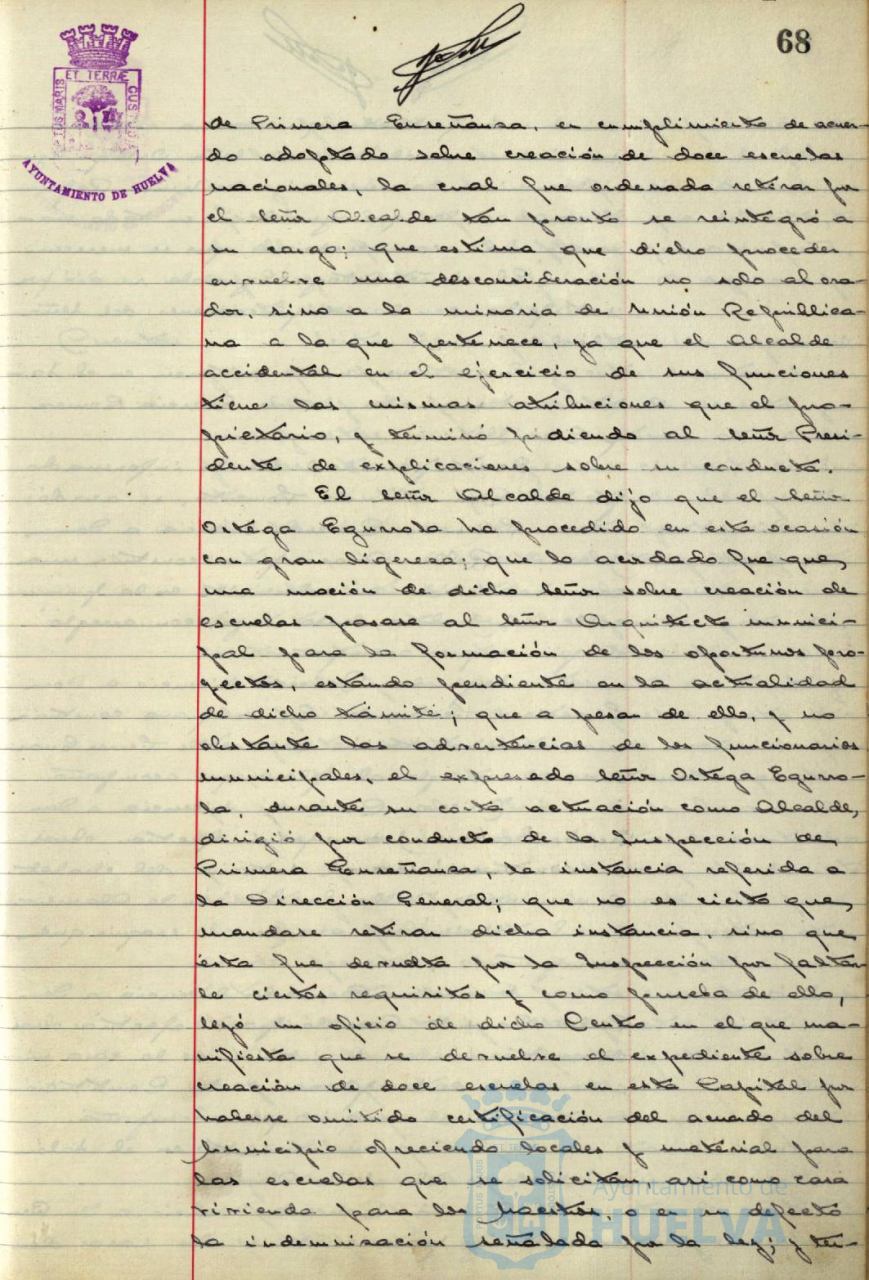 68
ET TERRÆ
PORTUS MARIS
CUSTODIA
AYUNTAMIENTO DE HUELVA
de Primera Enseñanza, en cumplimiento de acuer-
do adoptado sobre creación de doce escuelas
nacionales, la cual fue ordenada retirar por
el señor Alcalde tan pronto se reintegró a
su cargo; que estima que dicho proceder
envuelve una desconsideración no solo al ora-
dor, sino a la minoria de Unión Republica-
na a la que pertenece, ya que el Alcalde
accidental en el ejercicio de sus funciones
tiene las mismas atribuciones que el pro-
pietario, y terminó pidiendo al señor Presi-
dente de explicaciones sobre su conducta.
El señor Alcalde dijo que el señor
Ortega Egurrola ha procedido en esta ocasión
con gran ligereza; que lo acordado fue que
una moción de dicho señor sobre creación de
escuelas pasara al señor Arquitecto munici-
pal para la formación de los oportunos pro-
yectos, estando pendiente en la actualidad
de dicho trámite; que a pesar de ello, y no
obstante las advertencias de los funcionarios
municipales, el expresado señor Ortega Egurro-
la, durante su corta actuación como Alcalde,
dirigió por conducto de la Inspección de
Primera Enseñanza, la instancia referida a
la Dirección General; que no es cierto que
mandase retirar dicha instancia, sino que
ésta fue devuelta por la Inspección por faltar-
le ciertos requisitos y como prueba de ello,
leyó un oficio de dicho Centro en el que ma-
nifiesta que se devuelve el expediente sobre
creación de doce escuelas en esta Capital por
haberse omitido certificación del acuerdo del
Municipio ofreciendo locales y material para
las escuelas que se solicitan, asi como casa
vivienda para los Maestros, o en su defecto
la indemnización señalada por la ley; y ter-
Ayuntamiento de
HUELVA